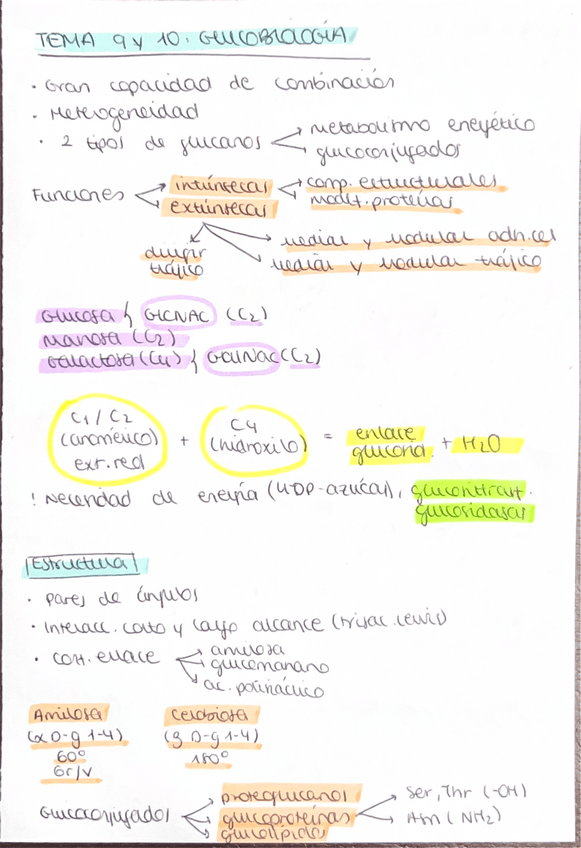 TEMA 9 y 10. GLICOBIOLOGÍA
· Gran capacidad de combinación
· Heterogeneidad
· 2 tipos de glicanos
metabolismo energético
glicoconjugados
Funciones
intrínsecas
extrínsecas
comp. estructurales
modif. proteínas
dirigir tráfico
mediar y modular adh.cel
mediar y modular tráfico
Glucosa } GlcNAc (C2)
Manosa (C2)
Galactosa (C4) } GalNac (C2)
C1 / C2 (anomérico) ext. red + C4 (hidroxilo) = enlace glicosid. + H2O
! Necesidad de energía (UDP-azúcar), glicositrasf.
glicosidasas
Estructura
· Pares de ángulos
· Interacc. corto y largo alcance (trisac. lewis)
· Conf. enlace
amilosa
glucomanano
ác. polisiálico
Amilosa
(α D-g 1-4)
60°
6r/v
Celobiosa
(β D-g 1-4)
180°
Glicoconjugados
proteoglicanos
glicoproteínas
glicolípidos
Ser, Thr (-OH)
Asn (NH2)